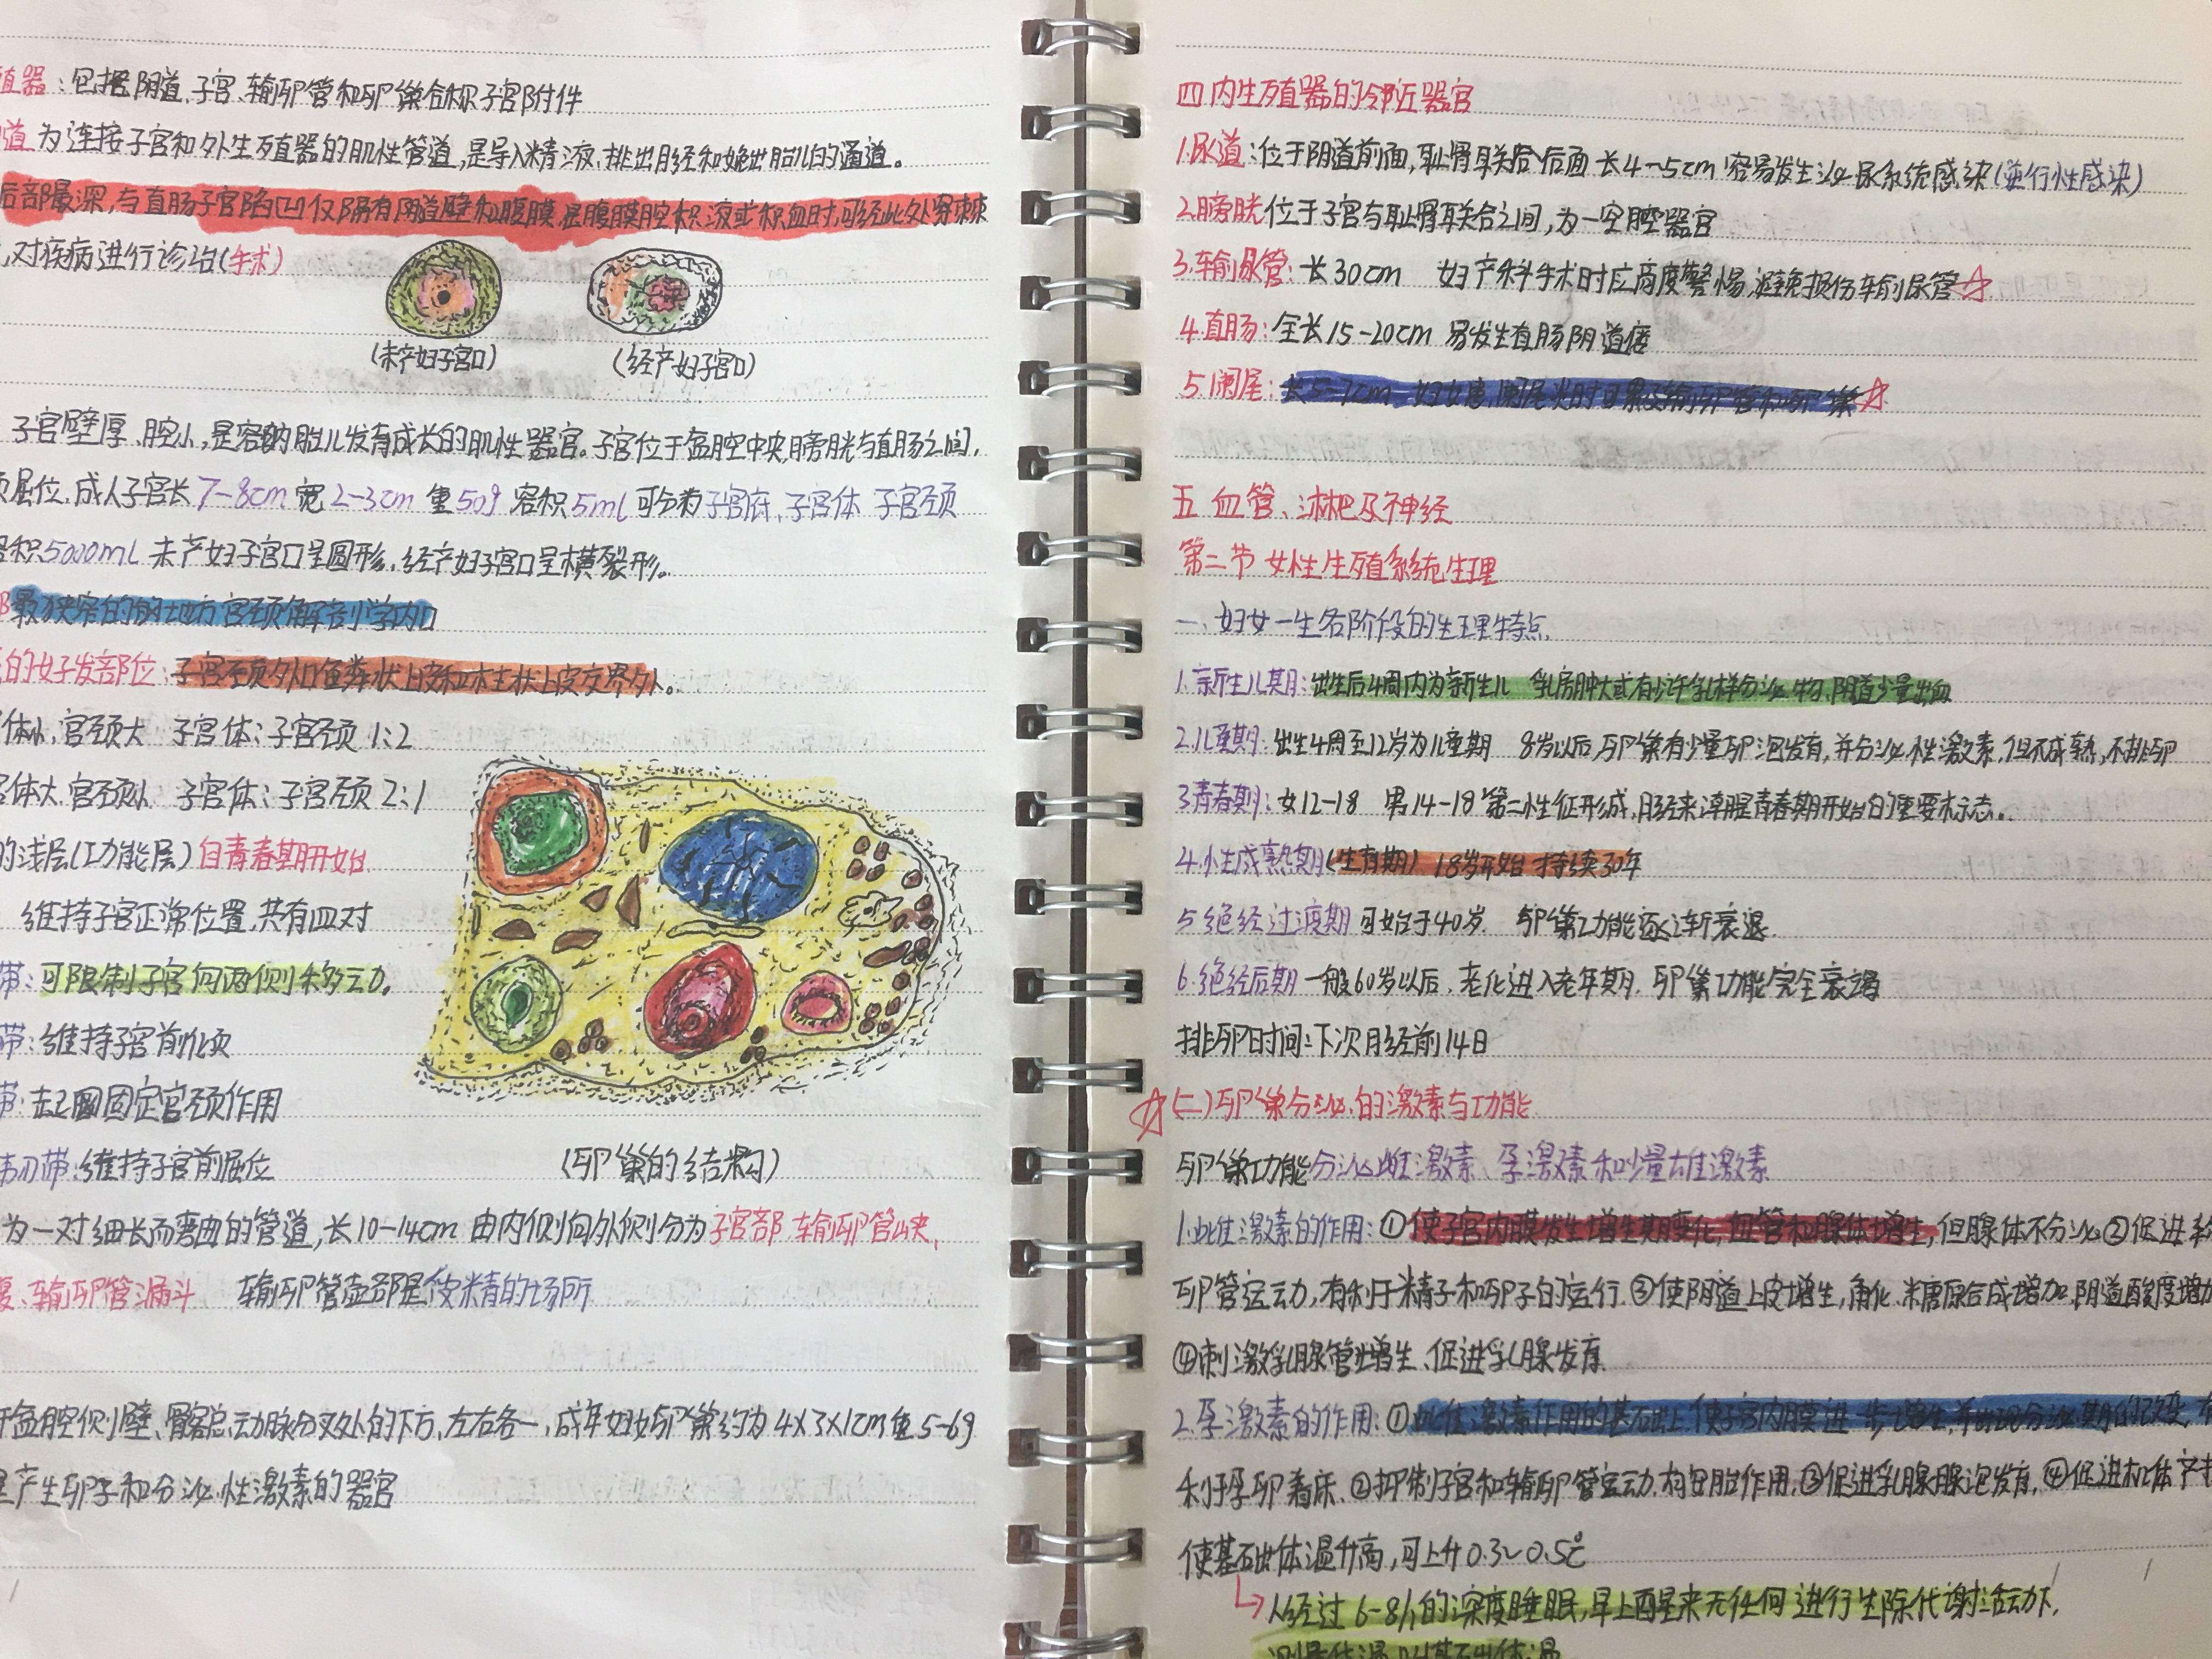 殖器：包括阴道、子宫、输卵管和卵巢合称子宫附件
道 为连接子宫和外生殖器的肌性管道，是导入精液、排出月经和娩出胎儿的通道。
后部最深，与直肠子宫陷凹仅隔有阴道壁和腹膜，在腹膜腔积液或积血时，可经此处穿刺
，对疾病进行诊治(手术)
(未产妇子宫口)
(经产妇子宫口)
子宫壁厚、腔小，是容纳胎儿发育成长的肌性器官。子宫位于盆腔中央，膀胱与直肠之间，
屈位，成人子宫长7-8cm 宽2-3cm 重50g 容积5ml 可分为子宫底、子宫体 子宫颈
容积5000ml 未产妇子宫口呈圆形，经产妇子宫口呈横裂形。
最狭窄的的地方 宫颈解剖学内口
的好发部位：子宫颈外口鳞状上皮和柱状上皮交界处。
体小，宫颈大 子宫体：子宫颈 1：2
宫体大，宫颈小 子宫体：子宫颈 2：1
的浅层(功能层) 自青春期开始
维持子宫正常位置，共有四对
带：可限制子宫向两侧移动。
带：维持子宫前倾
带：起固定宫颈作用
韧带：维持子宫前屈位
(卵巢的结构)
为一对细长而弯曲的管道，长10-14cm 由内侧向外侧分为子宫部 输卵管峡、
、输卵管漏斗 输卵管壶部是受精的场所
于盆腔侧壁、髂总动脉分叉处的下方，左右各一，成年妇女卵巢约为4×3×1cm 重5-6g
是产生卵子和分泌性激素的器官
四 内生殖器的邻近器官
1.尿道：位于阴道前面，耻骨联合后面 长4～5cm 容易发生泌尿系统感染(逆行性感染)
2.膀胱 位于子宫与耻骨联合之间，为一空腔器官
3.输尿管：长30cm 妇产科手术时应高度警惕，避免损伤输尿管☆
4.直肠：全长15-20cm 易发生直肠阴道瘘
5.阑尾：长5-7cm 妇女患阑尾炎时可累及输卵管和卵巢☆
五 血管、淋粑及神经
第二节 女性生殖系统生理
一、妇女一生各阶段的生理特点
1.新生儿期：出生后4周内为新生儿 乳房肿大或有少许乳样分泌物，阴道少量出血
2.儿童期：出生4周至12岁为儿童期 8岁以后，卵巢有少量卵泡发育，并分泌性激素，但不成熟，不排卵
3.青春期：女12-18 男14-18 第二性征形成，月经来潮是青春期开始的重要标志。
4.性成熟期(生育期) 18岁开始 持续30年
5.绝经过渡期 可始于40岁 卵巢功能逐渐衰退.
6.绝经后期 一般60岁以后，老化进入老年期，卵巢功能完全衰竭
排卵时间：下次月经前14日
☆(二)卵巢分泌的激素与功能
卵巢功能 分泌雌激素、孕激素和少量雄激素
1.雌激素的作用：①使子宫内膜发生增生期变化，血管和腺体增生，但腺体不分泌②促进
卵管运动，有利于精子和卵子的运行③使阴道上皮增生，角化，糖原合成增加，阴道酸度增加
④刺激乳腺管增生，促进乳腺发育
2.孕激素的作用：①雌激素作用的基础上，使子宫内膜进一步增生，并出现分泌期的改变，有
利于孕卵着床，②抑制子宫和输卵管运动，有安胎作用，③促进乳腺腺泡发育，④促进机体产
使基础体温升高，可上升0.3～0.5℃
人经过6-8h的深度睡眠，早上醒来无任何进行生除代谢活动下，
测量体温 叫基础体温